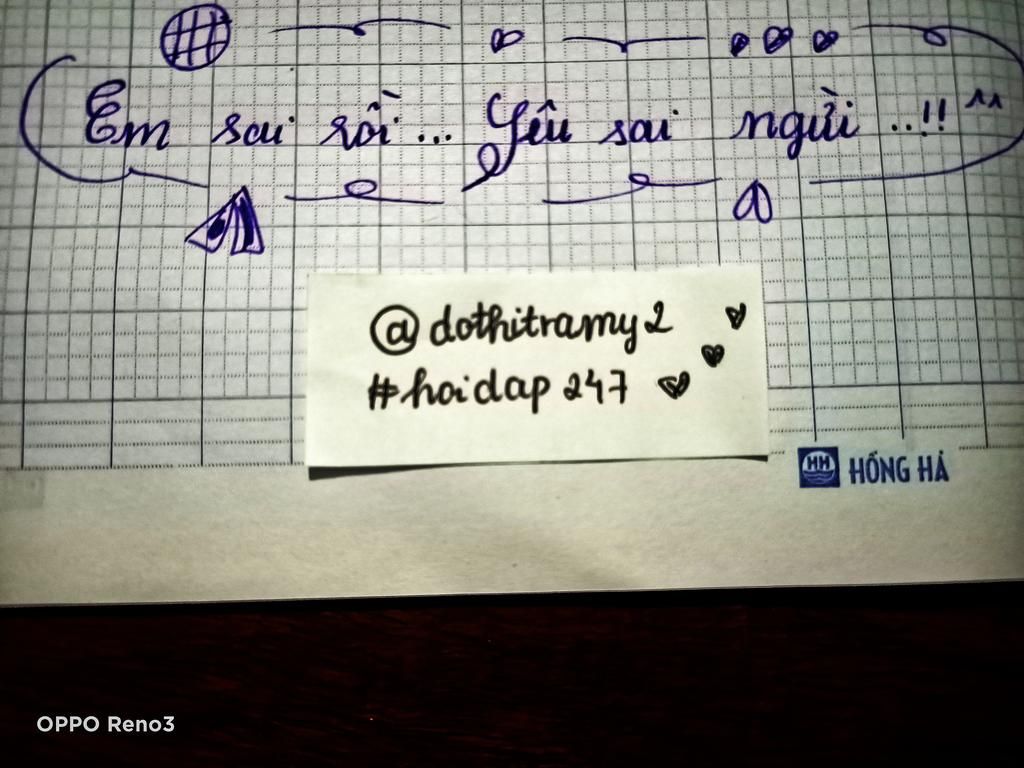 Em sai rồi... Yêu sai người ..!! ^^
@dothitramy2
#hoidap 247
HH HỒNG HÀ
OPPO Reno3